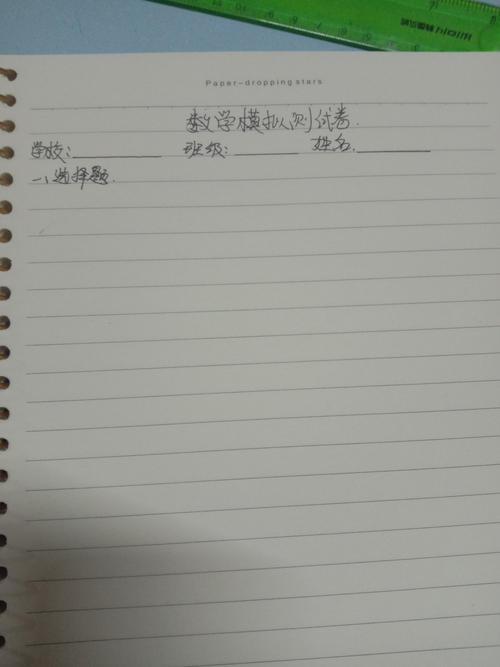 Paper-dropping stars
数学模拟测试卷.
学校:________ 班级:________ 姓名.________
一、选择题.